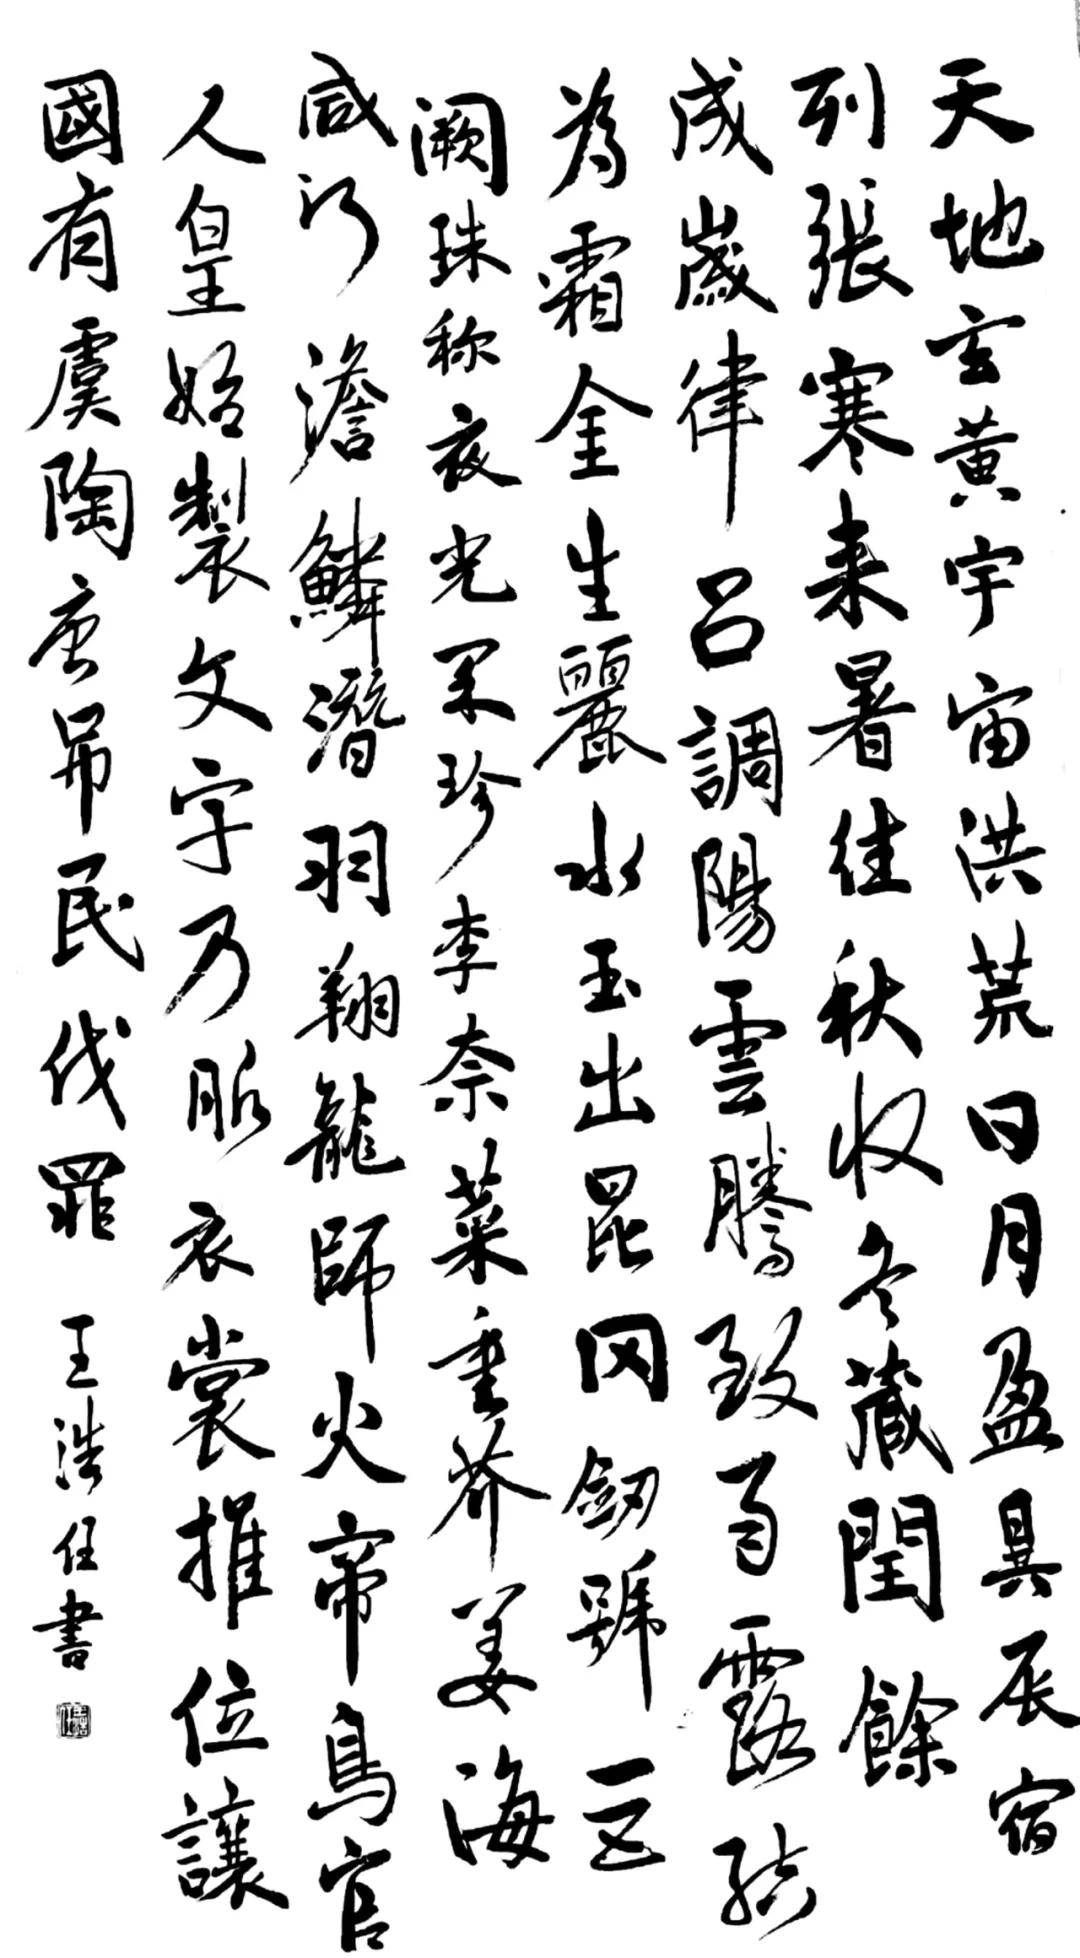 天地玄黄宇宙洪荒日月盈昃辰宿
列張寒来暑往秋収冬藏閏餘
成歲律呂調陽雲騰致雨露結
為霜金生麗水玉出昆冈劒號巨
闕珠称夜光果珍李柰菜重芥姜海
咸河澹鱗潛羽翔龍師火帝鳥官
人皇始製文字乃服衣裳推位讓
國有虞陶唐吊民伐罪 王浩任書